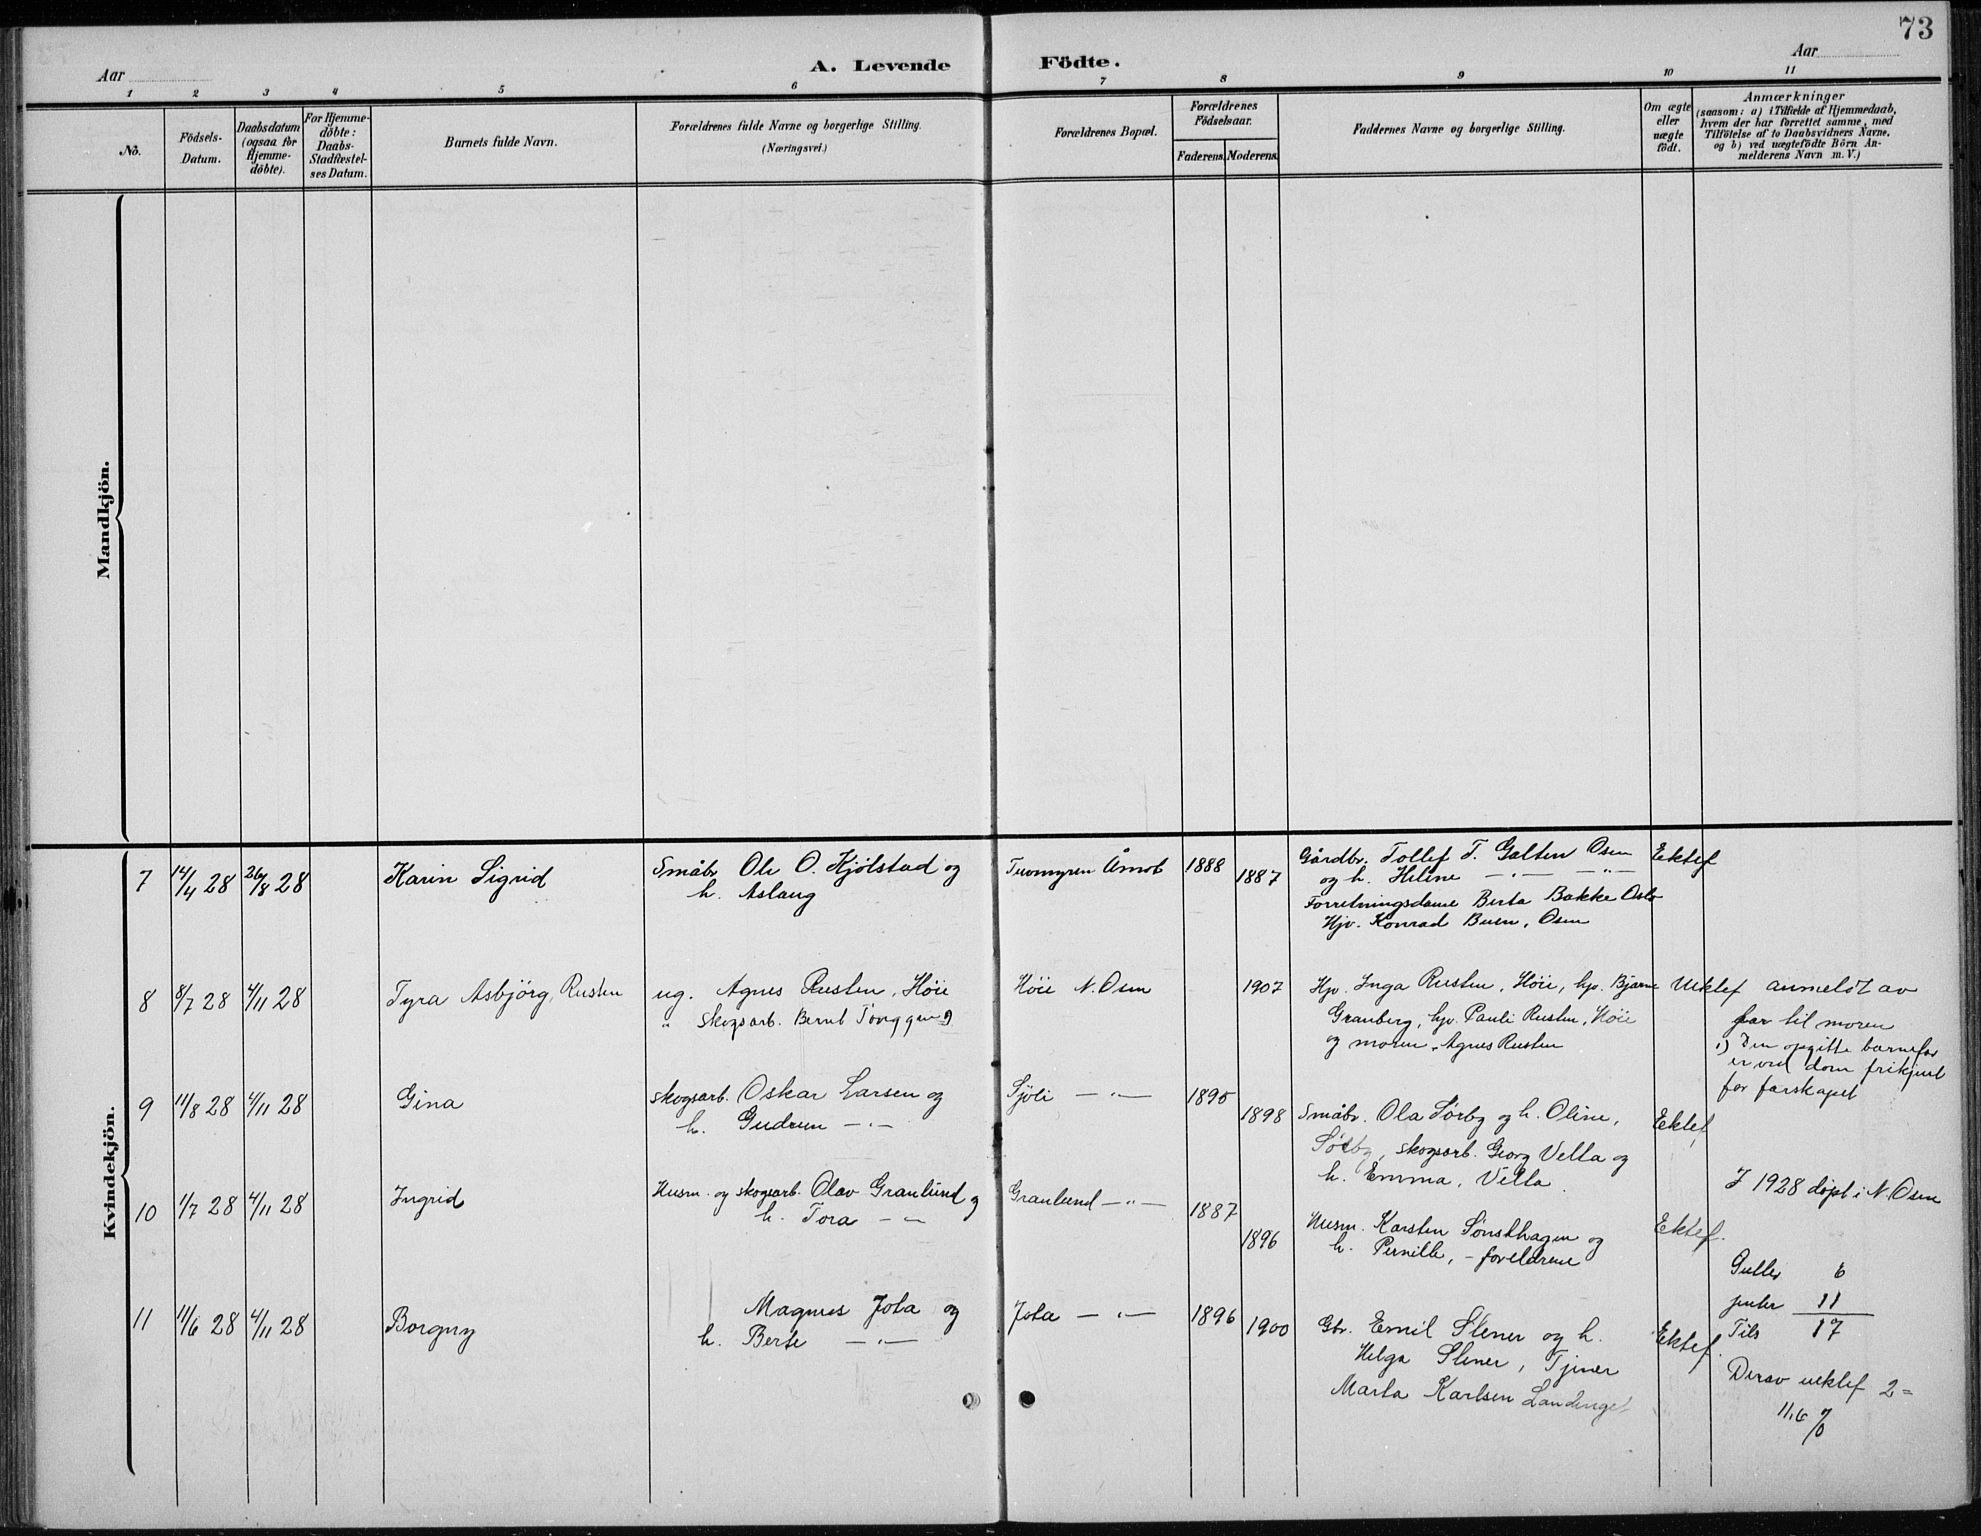 73
Aar
A. Levende
Födte.
Aar
1 2 3 4 5 6 7 8 9 10 11
No.
Födsels-
Datum.
Daabsdatum
(ogsaa for
Hjemme-
döbte).
For Hjemme-
döbte:
Daabs-
Stadfæstel-
ses Datum.
Barnets fulde Navn.
Forældrenes fulde Navne og borgerlige Stilling.
(Næringsvei.)
Forældrenes Bopæl.
Forældrenes
Födselsaar.
Faderens. Moderens.
Faddernes Navne og borgerlige Stilling.
Om ægte
eller
uægte
födt.
Anmærkninger
(saasom: a) i Tilfælde af Hjemmedaab,
hvem der har forrettet samme, med
Tilföielse af to Daabsvidners Navne.
og b) ved uægtefödte Börn An-
melderens Navn m. V.)
Mandkjön.
Kvindekjön.
7 14/4 28 26/8 28 Karin Sigrid
Småbr. Ole O. Kjölstad og
h. Aslaug
Åmot 1888 1887
Gårdbr. Tollef T. Galten Osen
og h. Heline — " — — " —
Forretningsdame Berta Bakke Oslo
Hjv. Konrad Buen, Osen
Ektef
8 8/7 28 4/11 28 Tyra Asbjörg, Rusten
ug. Agnes Rusten, Höie
" Skogsarb. Bernt
Höie N. Osen 1907
Hjv. Inga Rusten, Höie, hjv. Bjarne
Granberg, hjv. Pauli Rusten, Höie
og moren, Agnes Rusten
Uektef anmeldt av
far til moren
1) Den opgitte barnefar
er ved dom frikjent
for farskapet
9 11/8 28 4/11 28 Gina
Skogsarb. Oskar Larsen og
h. Gudrun — " —
Sjöli — " — 1895 1898
Småbr. Ola Sörby og h. Oline,
Sörby, skogsarb. Georg Vella og
h. Emma, Vella
Ektef
10 1/7 28 4/11 28 Ingrid
Husm. og skogsarb. Olav Granlund og
h. Tora — " —
Granlund — " — 1887 1896
Husm. Karsten Sönsthagen og
h. Pernille, - foreldrene
Ektef.
I 1928 döpt i N. Osen
Gutter 6
jenter 11
Tils 17
Derav uektef 2 =
11,6 %
11 11/6 28 4/11 28 Borgny
Magnus Jota og
h. Berte — " —
Jota — " — 1896 1900
Gbr. Emil Slener og h.
Helga Slener, Tjener
Marta Karlsen Landinget
Ektef.